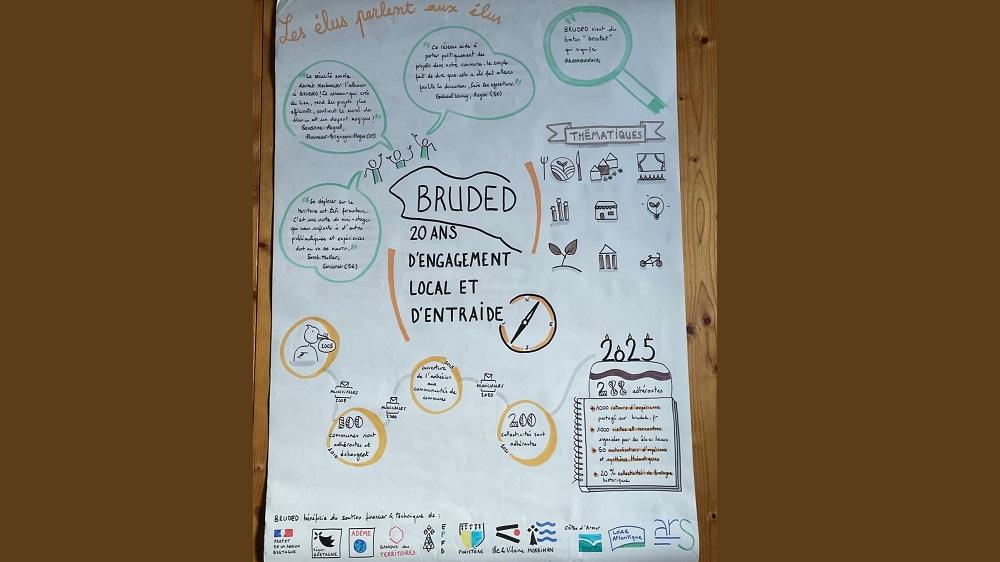 Les élus parlent aux élus
Ce réseau aide à
porter politiquement des
projets dans notre commune. Le simple
fait de dire que cela a été fait ailleurs
facilite la discussion, lève les oppositions."
BRUDED vient du
breton "bruded"
qui signifie
"La sécurité sociale
devrait rembourser l'adhésion
à BRUDED! Ce réseau qui crée
du lien, rend les projets plus
efficients, soutient le moral des
élus
THÉMATIQUES
"Se déplacer sur le
territoire est très formateur.
C'est une sorte de mini-stage
qui nous confronte à d'autres
problématiques et expériences
dont on va se nourrir."
BRUDED
20 ANS
D'ENGAGEMENT
LOCAL ET
D'ENTRAIDE
N
E
S
2005
MUNICIPALES
2008
100
communes sont
adhérentes et
échangent
MUNICIPALES
ouverture
de l'adhésion
aux
communautés de
communes
MUNICIPALES
2020
200
collectivités sont
adhérentes
2025
288 adhérentes
1000 retours d'expérience
partagés sur bruded.fr
1000 visites et rencontres
organisées par les élus locaux
50 mutualisations d'ingénierie
et synthèses thématiques
20% collectivités de Bretagne
historique
BRUDED bénéficie du soutien financier & technique de :
PRÉFET
DE LA RÉGION
BRETAGNE
Région
BRETAGNE
ADEME
BANQUE des
TERRITOIRES
EPFB
FINISTÈRE
Ille & Vilaine
MORBIHAN
Côtes d'Armor
Loire
Atlantique
ars